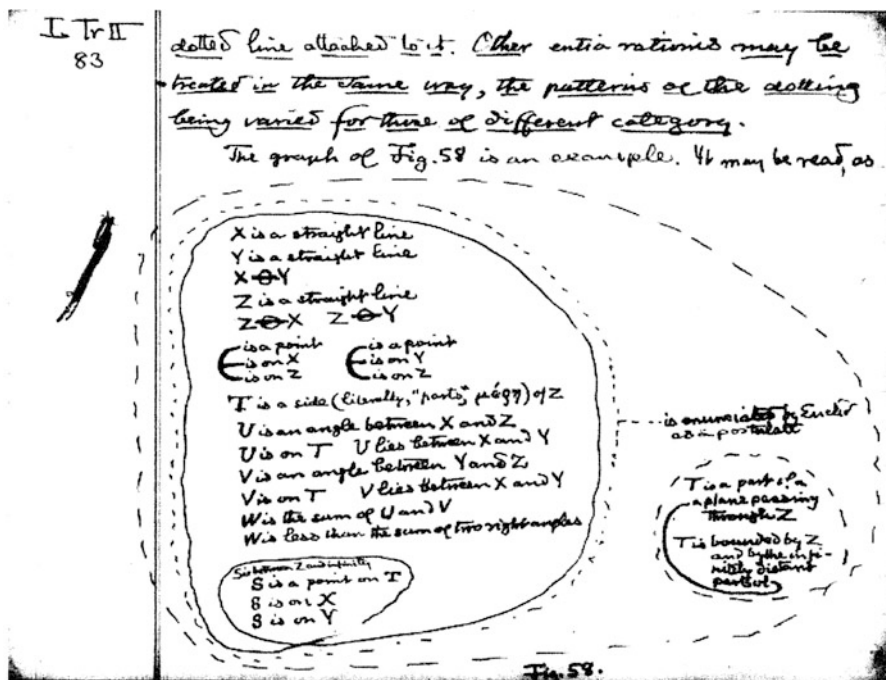 I Tr II
83
dotted line attached to it. Other entia rationis may be
treated in the same way, the patterns of the dotting
being varied for those of different category.
The graph of Fig. 58 is an example. It may be read, as
X is a straight line
Y is a straight line
X O Y
Z is a straight line
Z O X Z O Y
is a point is a point
is on X is on Y
is on Z is on Z
T is a side (literally, "parts," μέρη) of Z
U is an angle between X and Z
U is on T U lies between X and Y
V is an angle between Y and Z
V is on T V lies between X and Y
W is the sum of U and V
W is less than the sum of two right angles
S is between Z and infinity
S is a point on T
S is on X
S is on Y
is enunciated by Euclid
as a postulate
T is a part of a
a plane passing
through Z
T is bounded by Z
and by the infi-
nitely distant
parts of
Fig. 58.